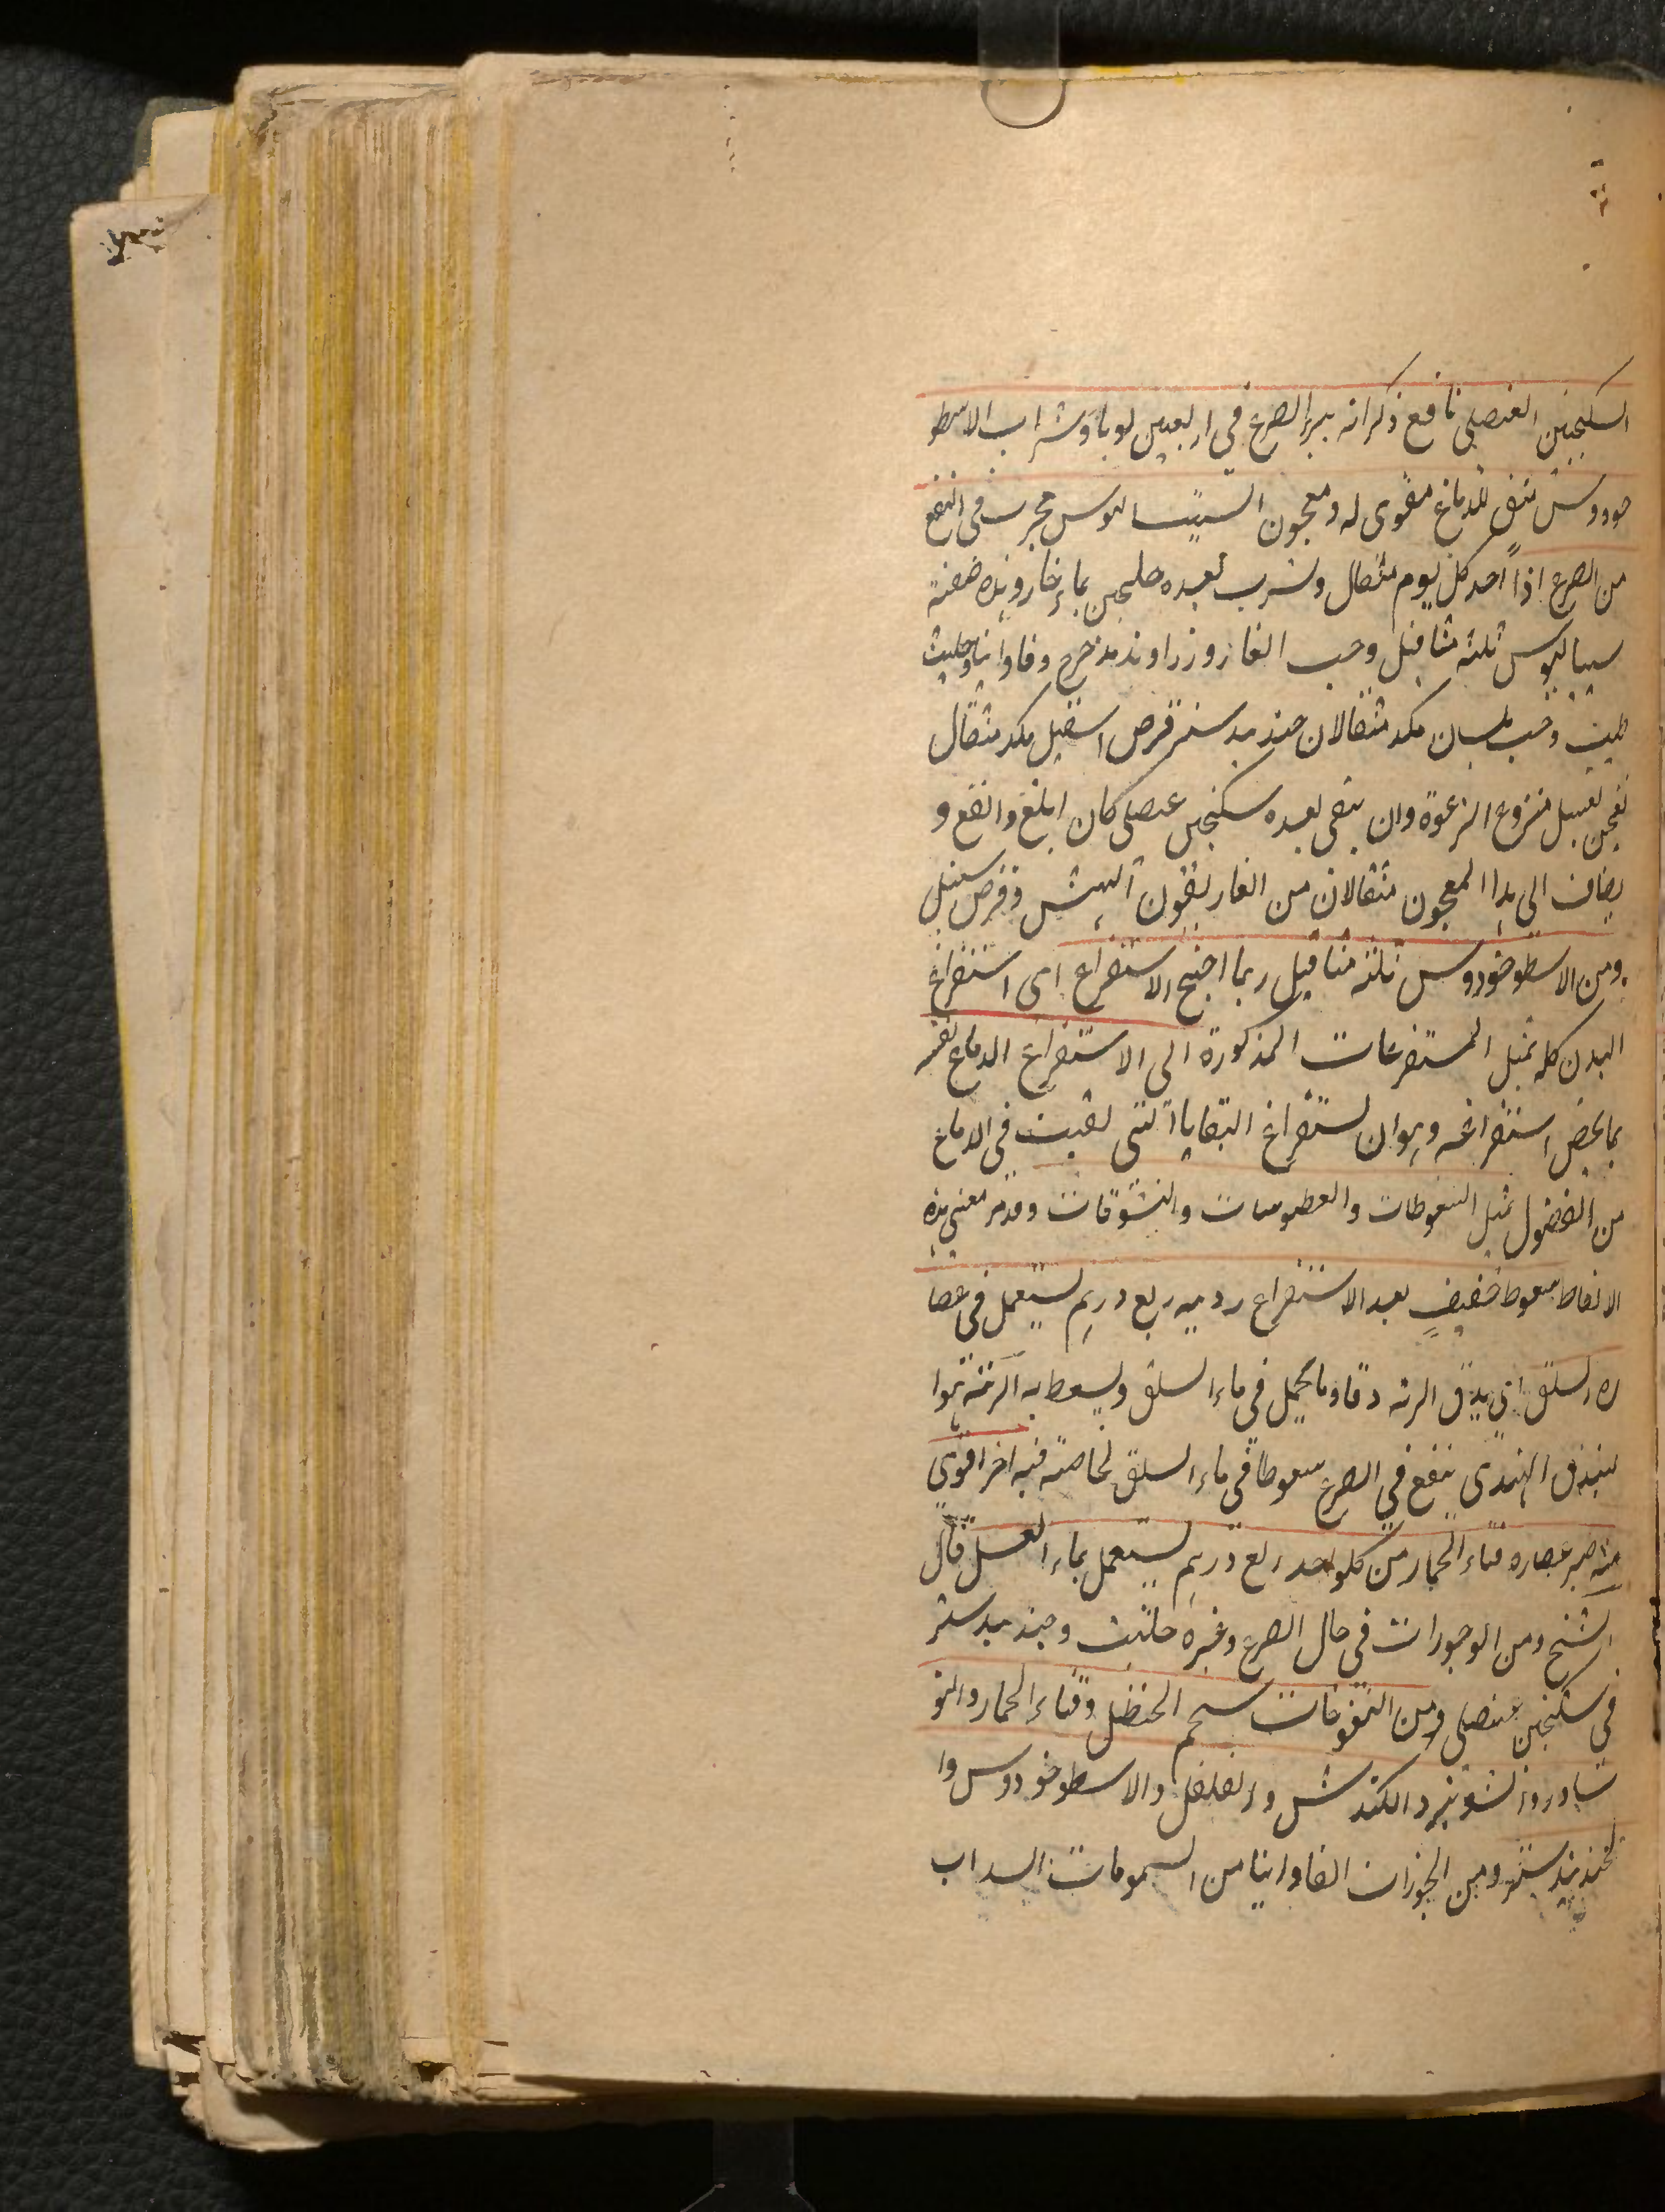 السكنجبين العنصلى نافع ذكر انه يبرء الصرع فى اربعين يوما وشراب الاسطو
خودوس منقى للدماغ مقوى له ومعجون السيساليوس مجرب فى النفع
من الصرع اذا اخذ كل يوم مثقال وشرب بعده جلنجبين بماء حار وهذه صفته
سيساليوس ثلثة مثاقيل وحب الغار وزراوند مدحرج وفاوانيا وحلتيت
طيب وحب بلسان مكد مثقالان جندبيدستر قرص اسقيل مكد مثقال
يعجن بعسل منزوع الرغوة وان يسقى بعده سكنجبين عنصلى كان ابلغ وانفع و
يضاف الى هذا المعجون مثقالان من الغاريقون الهش وقرص سنبل
ومن الاسطوخودوس ثلثة مثاقيل ربما احتيج الاستفراغ اى استفراغ
البدن كله بمثل المستفرغات المذكورة الى الاستفراغ الدماغ نفسه
بما يخص استفراغه وهو ان يستفرغ البقايا التى بقيت فى الدماغ
من الفضول بمثل السعوطات والعطوسات والنشوقات وقد مر معنى هذه
الالفاظ سعوط خفيف بعد الاستفراغ ربع درهم يستعمل فى عصا
ره السلق اى يدق الرته دقا وما يحمل فى ماء السلق ويسعط به الرتة هوا
لبندق الهندى ينفع فى الصرع سعوطا فى ماء السلق لخاصته فيه اخر اقوى
منه صبر عصاره قثاء الحمار من كلواحد ربع درهم يستعمل بماء العسل قال
الشيخ ومن الوجورات فى حال الصرع وغيره حلتيت وجندبيدستر
فى سكنجبين عنصلى ومن النفوخات شحم الحنظل وقثاء الحمار والنو
شادر والشونيز والكندش والفلفل والاسطوخودوس وا
لجندبيدستر ومن البخورات الفاوانيا من الشمومات السداب